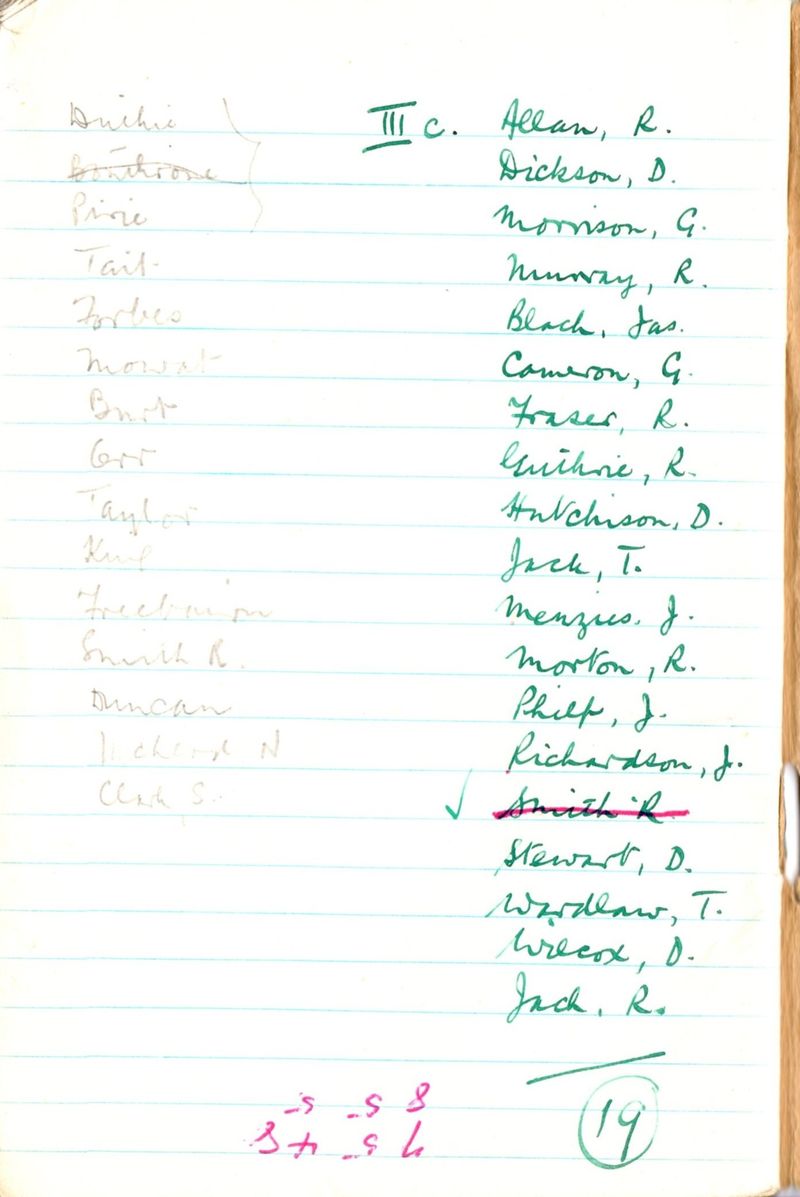 Duthie
Bonthrone
Pirie
Tait
Forbes
Mowat
Burt
Orr
Taylor
King
Freebairn
Smith R.
Duncan
N
Clark S.
III c. Allan, R.
Dickson, D.
Morrison, G.
Murray, R.
Black, Jas.
Cameron, G.
Fraser, R.
Guthrie, R.
Hutchison, D.
Jack, T.
Menzies, J.
Morton, R.
Philp, J.
Richardson, J.
✓ Smith R
Stewart, D.
Wardlaw, T.
Wilcox, D.
Jack, R.
19